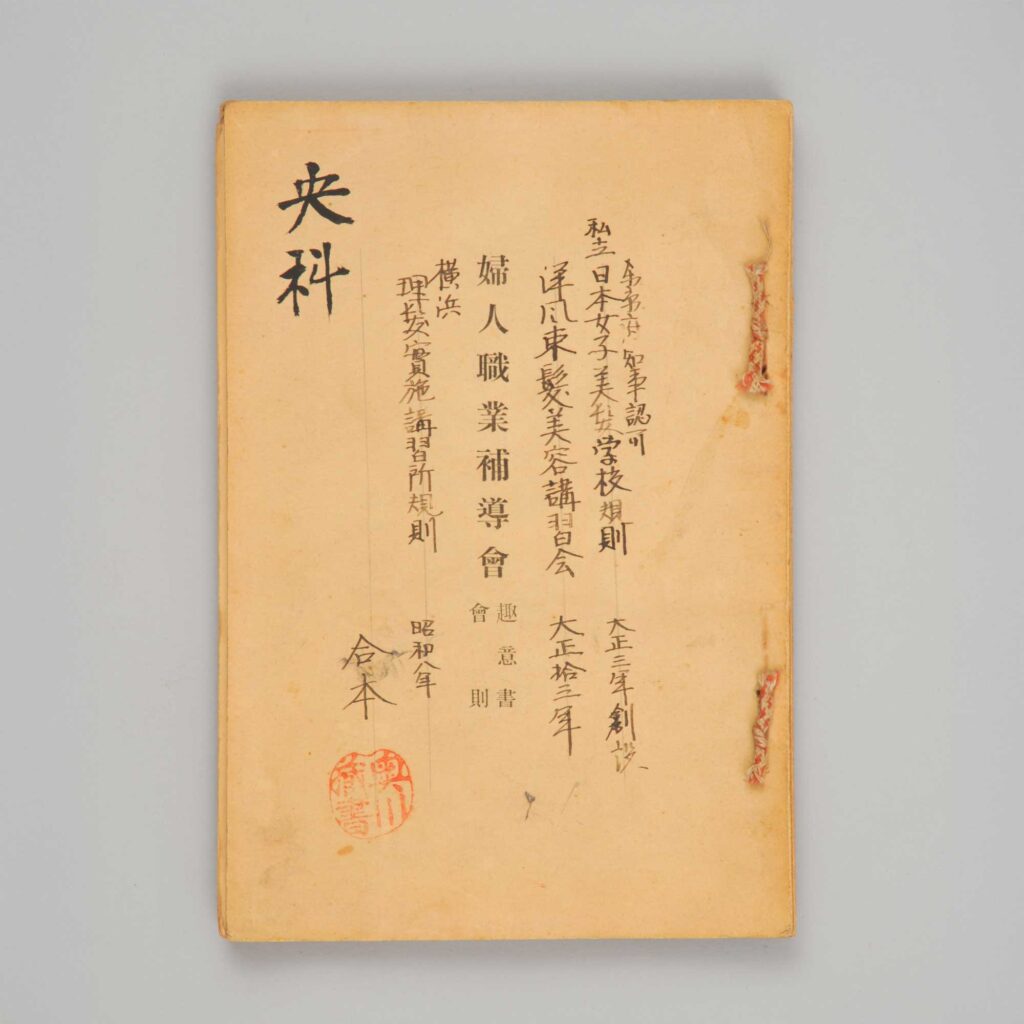 東京府知事認可
私立日本女子美髪学校規則 大正三年創設
洋風束髪美容講習会 大正拾三年
婦人職業補導會 趣意書
會則
横浜
理髪實施講習所規則 昭和八年
合本
央科
蔵書